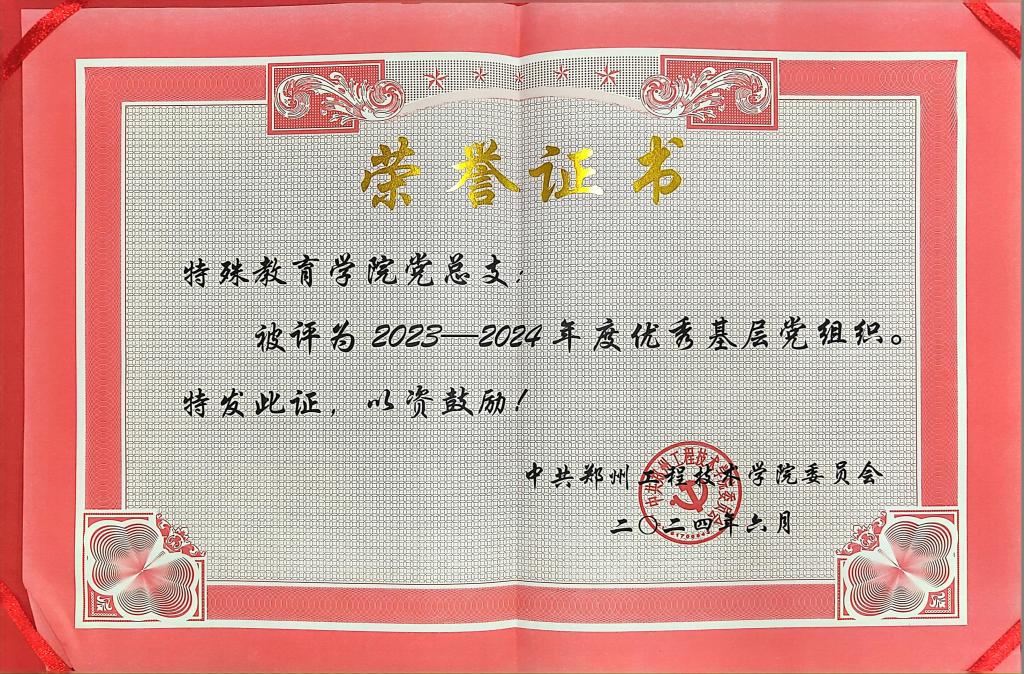 荣誉证书
特殊教育学院党总支：
被评为 2023—2024 年度优秀基层党组织。
特发此证，以资鼓励！
中共郑州工程技术学院委员会
二〇二四年六月
中共郑州工程技术学院委员会